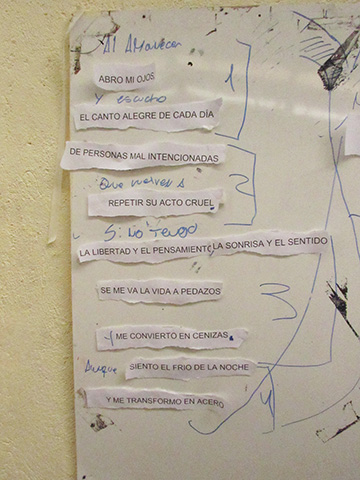 Al Amanecer
ABRO MI OJOS
Y escucho
EL CANTO ALEGRE DE CADA DÍA
1
DE PERSONAS MAL INTENCIONADAS
Que vuelven a
2
REPETIR SU ACTO CRUEL
Si no tengo
LA LIBERTAD Y EL PENSAMIENTO LA SONRISA Y EL SENTIDO
SE ME VA LA VIDA A PEDAZOS
3
Y ME CONVIERTO EN CENIZAS.
Aunque SIENTO EL FRIO DE LA NOCHE
4
Y ME TRANSFORMO EN ACERO